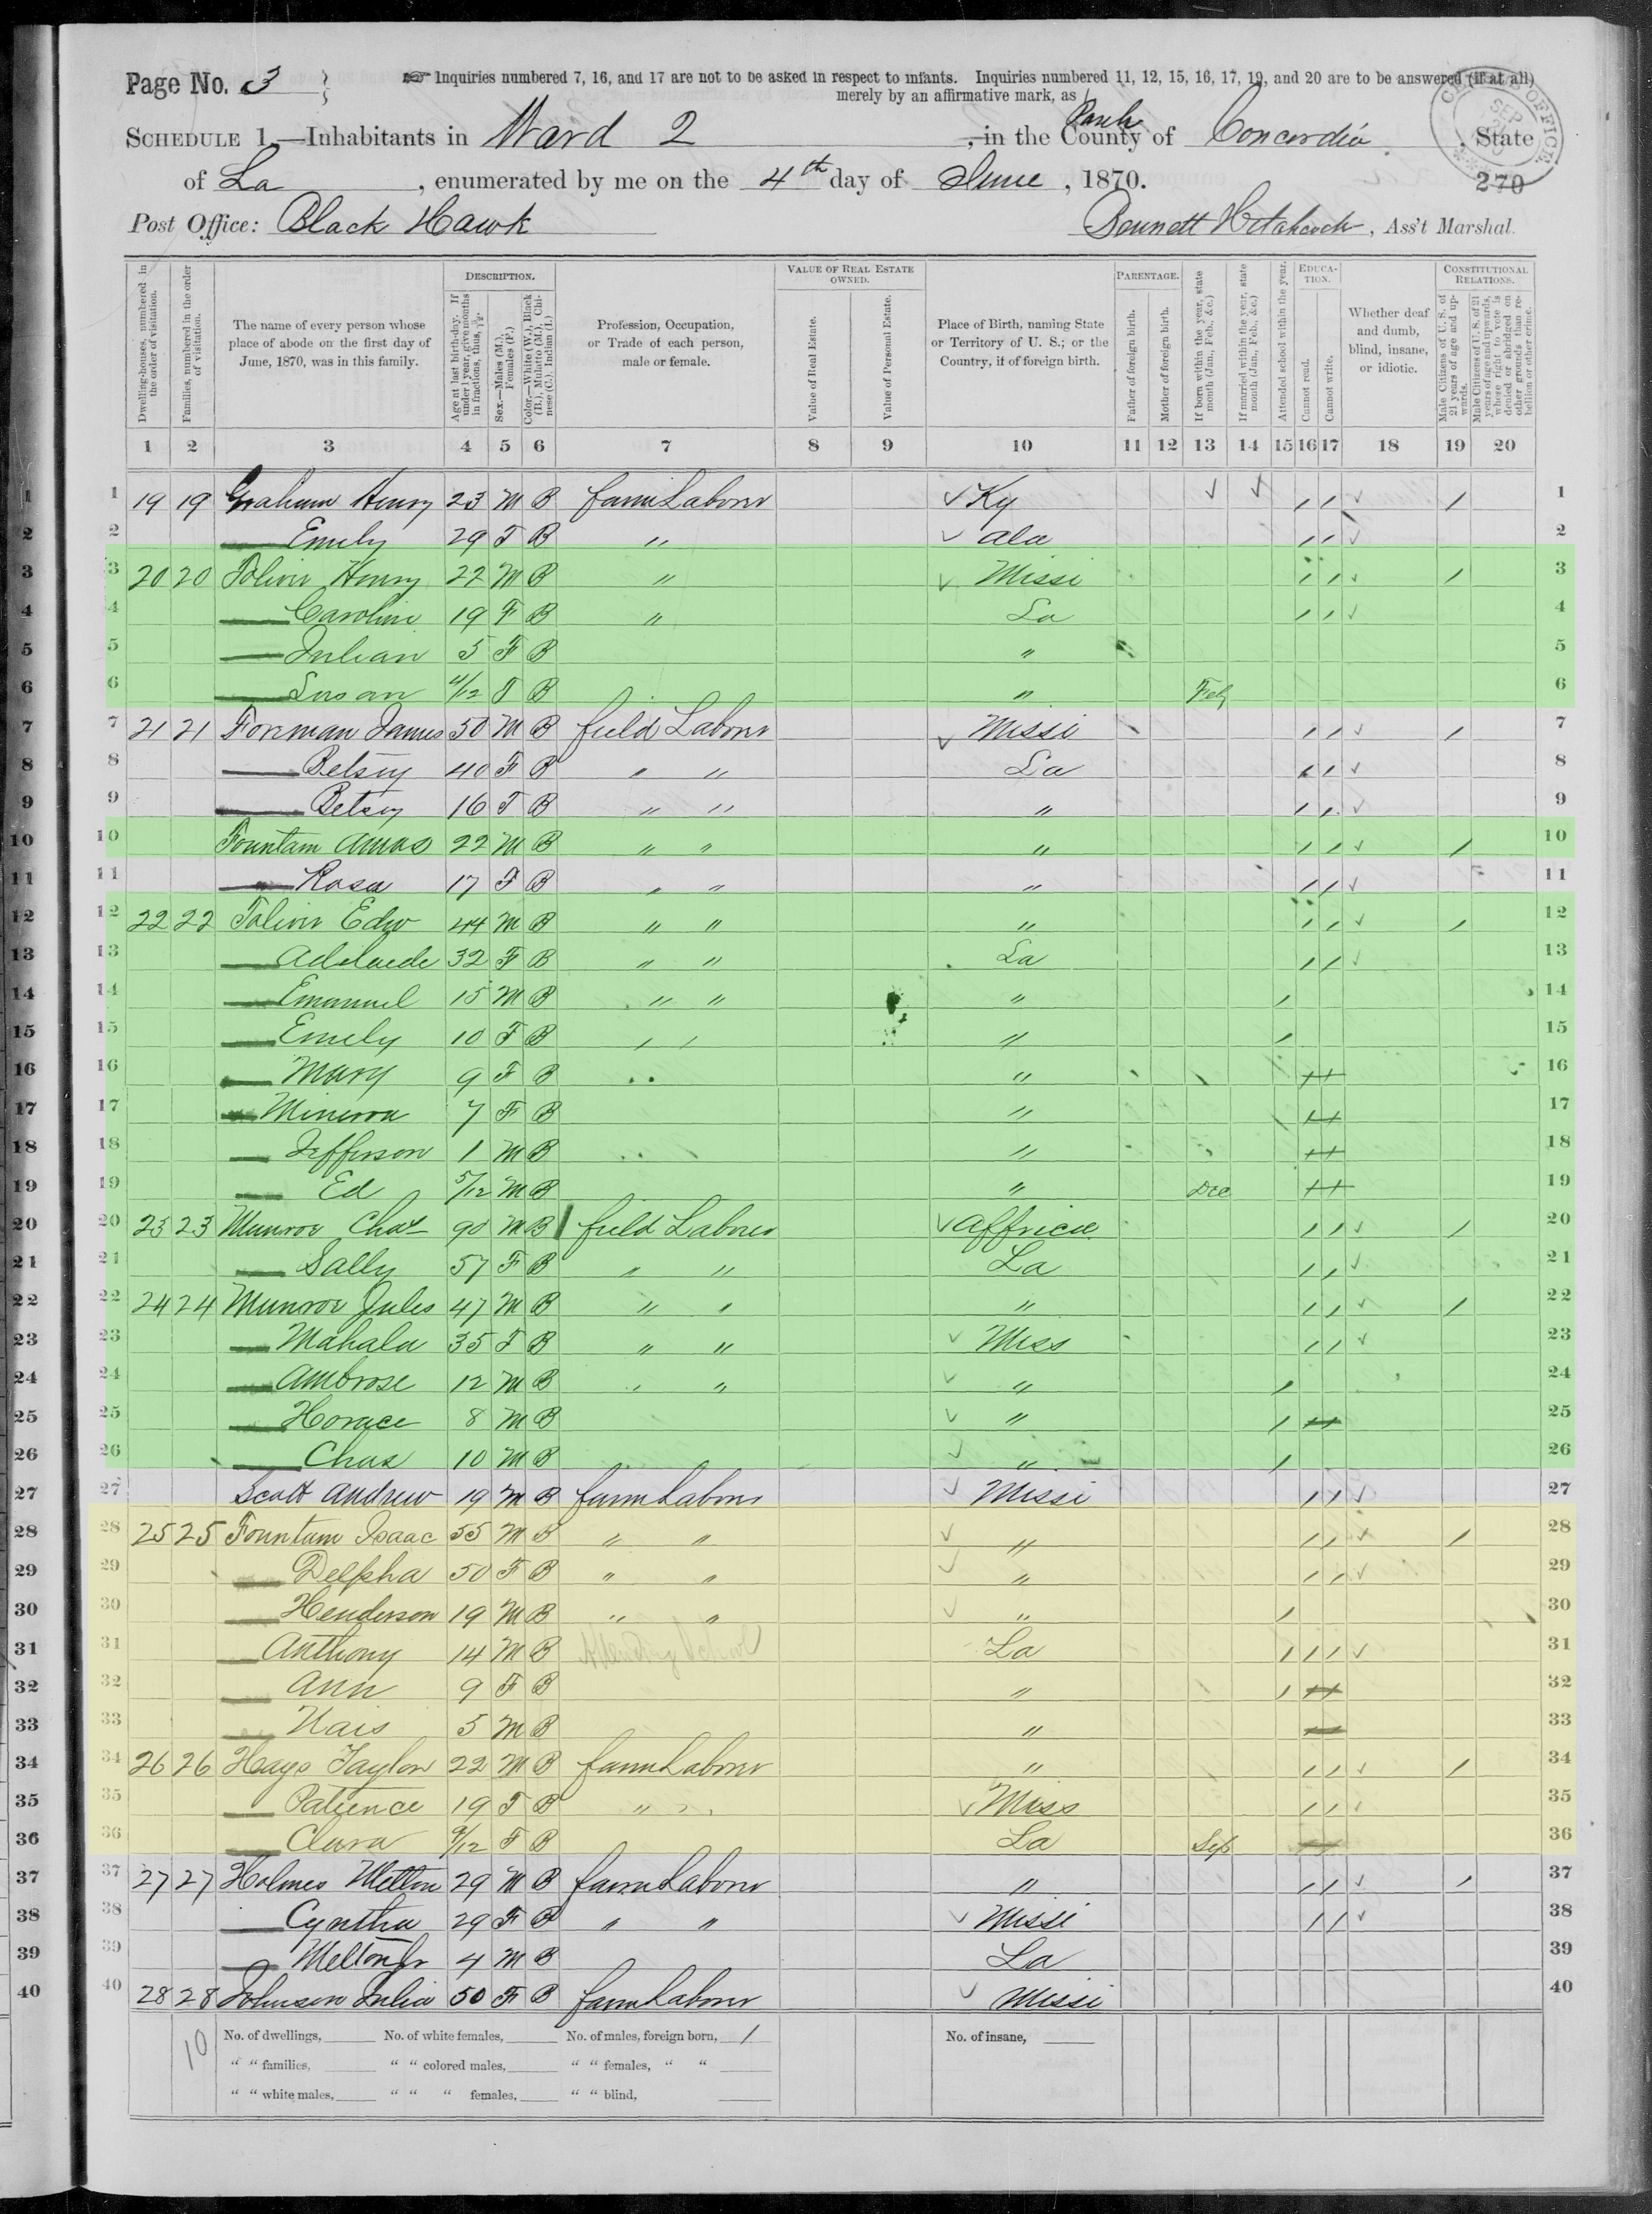 Page No. 3
☞ Inquiries numbered 7, 16, and 17 are not to be asked in respect to infants. Inquiries numbered 11, 12, 15, 16, 17, 19, and 20 are to be answered (if at all)
merely by an affirmative mark, as /
SCHEDULE 1.—Inhabitants in Ward 2, in the County of Concordia, State
of La, enumerated by me on the 4th day of June, 1870.
CENSUS OFFICE SEP
270
Post Office: Black Hawk
Bennett, Ass't Marshal.
Dwelling-houses, numbered in the order of visitation.
Families, numbered in the order of visitation.
The name of every person whose place of abode on the first day of June, 1870, was in this family.
DESCRIPTION.
Age at last birth-day. If under 1 year, give months in fractions, thus, 3/12.
Sex.—Males (M.), Females (F.)
Color.—White (W.), Black (B.), Mulatto (M.), Chinese (C.), Indian (I.)
Profession, Occupation, or Trade of each person, male or female.
VALUE OF REAL ESTATE OWNED.
Value of Real Estate.
Value of Personal Estate.
Place of Birth, naming State or Territory of U. S.; or the Country, if of foreign birth.
PARENTAGE.
Father of foreign birth.
Mother of foreign birth.
If born within the year, state month (Jan., Feb., &c.)
If married within the year, state month (Jan., Feb., &c.)
Attended school within the year.
EDUCATION.
Cannot read.
Cannot write.
Whether deaf and dumb, blind, insane, or idiotic.
CONSTITUTIONAL RELATIONS.
Male Citizens of U. S. of 21 years of age and upwards.
Male Citizens of U. S. of 21 years of age and upwards, where right to vote is denied or abridged on other grounds than rebellion or other crime.
1 2 3 4 5 6 7 8 9 10 11 12 13 14 15 16 17 18 19 20
1 19 19 Graham Henry 23 M B farm Laborer ✓ Ky ✓ ✓ / / ✓ / 1
2 — Emily 29 F B " ✓ Ala / / ✓ 2
3 20 20 Toliver Henry 22 M B " ✓ Missi / / ✓ / 3
4 — Caroline 19 F B " La / / ✓ 4
5 — Julian 5 F B " 5
6 — Susan 4/12 F B " Feb 6
7 21 21 Forman James 50 M B field Laborer ✓ Missi / / ✓ / 7
8 — Betsey 40 F B " " La / / ✓ 8
9 — Betsey 16 F B " " " / / ✓ 9
10 Fountain Amas 22 M B " " " / / ✓ / 10
11 — Rosa 17 F B " " " / / ✓ 11
12 22 22 Toliver Edw 44 M B " " " / / ✓ / 12
13 — Adelaide 32 F B " " La / / ✓ 13
14 — Emanuel 15 M B " " " / 14
15 — Emely 10 F B " " " / 15
16 — Mary 9 F B " 16
17 — Minerva 7 F B " 17
18 — Jefferson 1 M B " 18
19 — Ed 5/12 M B " Dec 19
20 23 23 Munroe Chas 90 M B field Laborer ✓ Affrica / / ✓ / 20
21 — Sally 57 F B " " La / / ✓ 21
22 24 24 Munroe Jules 47 M B " " " / / ✓ / 22
23 — Mahala 35 F B " " ✓ Miss / / ✓ 23
24 — Ambrose 12 M B " " ✓ " / 24
25 — Horace 8 M B ✓ " / 25
26 — Chas 10 M B ✓ " / 26
27 Scott Andrew 19 M B farm Laborer ✓ Missi / / ✓ 27
28 25 25 Fountain Isaac 55 M B " " ✓ " / / ✓ / 28
29 — Delpha 50 F B " " ✓ " / / ✓ 29
30 — Henderson 19 M B " " ✓ " / 30
31 — Anthony 14 M B Attending School La / / / ✓ 31
32 — Ann 9 F B " / 32
33 — Nais 5 M B " 33
34 26 26 Hays Taylor 22 M B farm Laborer " / / ✓ / 34
35 — Patience 19 F B " " ✓ Miss / / ✓ 35
36 — Clara 9/12 F B La Sep 36
37 27 27 Holmes Melton 29 M B farm Laborer " / / ✓ / 37
38 — Cyntha 29 F B " " ✓ Missi / / ✓ 38
39 — Melton Jr 4 M B La 39
40 28 28 Johnson Julia 50 F B farm Laborer ✓ Missi 40
10
No. of dwellings, No. of white females, No. of males, foreign born, 1 No. of insane,
" " families, " " colored males, " " females, " "
" " white males, " " " females, " " blind,